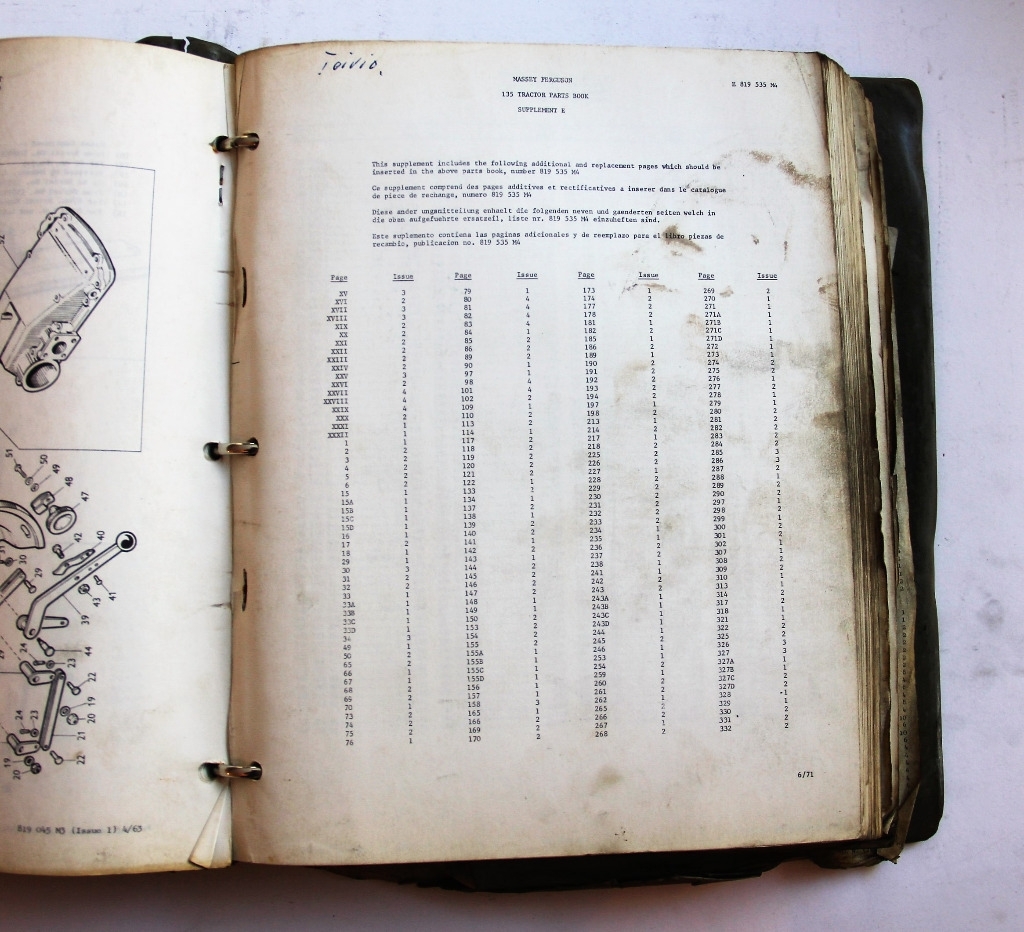 Toivio.
MASSEY FERGUSON
Z 819 535 M4
135 TRACTOR PARTS BOOK
SUPPLEMENT E
This supplement includes the following additional and replacement pages which should be
inserted in the above parts book, number 819 535 M4
Ce supplement comprend des pages additives et rectificatives a inserer dans le catalogue
de piece de rechange, numero 819 535 M4
Diese ander ungmitteilung enhuelt die folgenden neven und gaenderten seiten welch in
die oben aufgefuehrte ersatzeil, liste nr. 819 535 M4 einzuheften sind.
Este suplemento contiena las paginas adicionales y de reemplazo para el libro piezas de
recambio, publicacion no. 819 535 M4
Page Issue Page Issue Page Issue Page Issue
XV 3 79 1 173 1 269 2
XVI 2 80 4 174 2 270 1
XVII 3 81 4 177 2 271 1
XVIII 3 82 4 178 2 271A 1
XIX 2 83 4 181 1 271B 1
XX 2 84 1 182 2 271C 1
XXI 2 85 2 185 1 271D 1
XXII 2 86 2 186 2 272 1
XXIII 2 89 2 189 1 273 1
XXIV 2 90 1 190 2 274 2
XXV 3 97 1 191 2 275 2
XXVI 2 98 4 192 2 276 1
XXVII 4 101 4 193 2 277 2
XXVIII 4 102 2 194 2 278 1
XXIX 4 109 1 197 1 279 1
XXX 2 110 2 198 2 280 2
XXXI 1 113 2 213 1 281 2
XXXII 1 114 1 214 2 282 2
1 1 117 2 217 1 283 2
2 2 118 2 218 2 284 2
3 2 119 2 225 2 285 3
4 2 120 2 226 2 286 3
5 2 121 2 227 1 287 2
6 2 122 1 228 2 288 1
15 1 133 1 229 2 289 2
15A 1 134 1 230 2 290 2
15B 1 137 2 231 2 297 1
15C 1 138 1 232 2 298 2
15D 1 139 2 233 2 299 1
16 1 140 2 234 1 300 2
17 2 141 1 235 1 301 2
18 1 142 2 236 2 302 1
29 1 143 1 237 2 307 1
30 3 144 2 238 1 308 2
31 2 145 2 241 1 309 2
32 2 146 2 242 2 310 1
33 1 147 2 243 2 313 1
33A 1 148 1 243A 2 314 2
33B 1 149 1 243B 1 317 2
33C 1 150 2 243C 1 318 1
33D 1 153 2 243D 1 321 1
34 3 154 2 244 1 322 2
49 1 155 1 245 2 325 2
50 2 155A 1 246 1 326 3
65 2 155B 1 253 1 327 3
66 1 155C 1 254 2 327A 1
67 1 155D 1 259 1 327B 1
68 2 156 1 260 2 327C 2
69 2 157 1 261 2 327D 2
70 1 158 3 262 1 328 1
73 2 165 1 265 2 329 1
74 2 166 2 266 2 330 2
75 2 169 2 267 1 331 2
76 1 170 2 268 2 332 2
6/71
51
50
49
48
47
42
40
30
29
43
41
39
44
23
22
24
23
19
20
21
19
20
22
819 045 M3 (Issue 1) 4/63